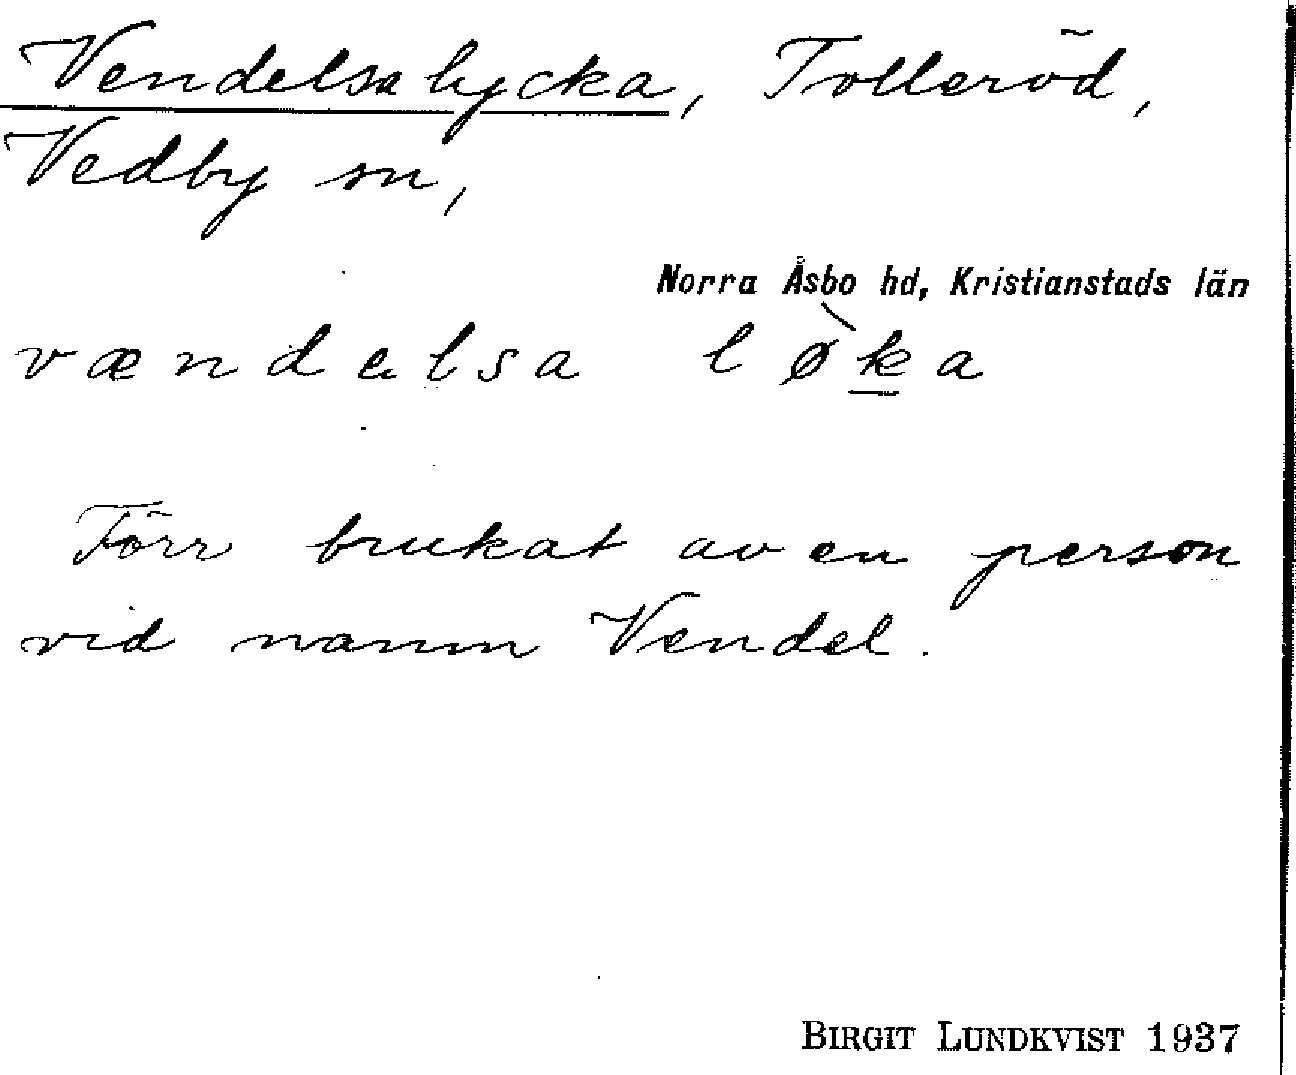 Vendelsalycka, Tolleröd,
Vedby sn,
Norra Åsbo hd, Kristianstads län
vændelsa lø̀k̲a
Förr brukat av en person
vid namn Vendel.
BIRGIT LUNDKVIST 1937